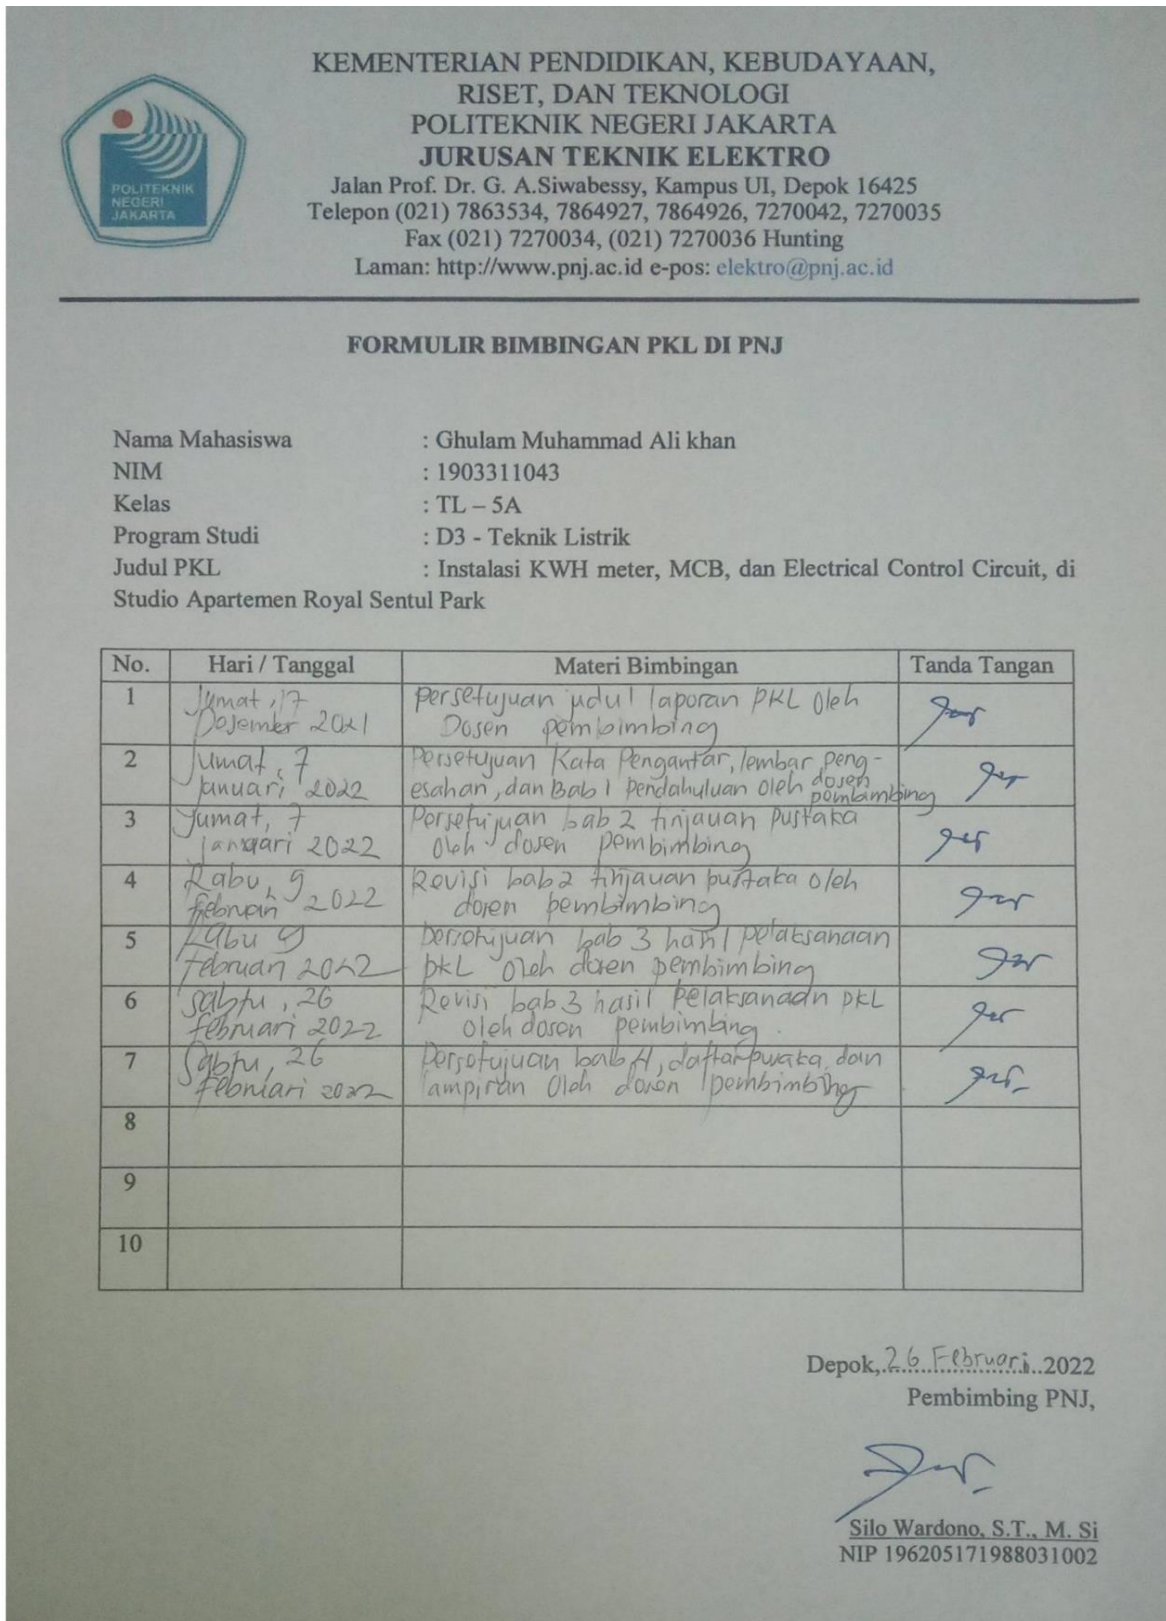 KEMENTERIAN PENDIDIKAN, KEBUDAYAAN,
RISET, DAN TEKNOLOGI
POLITEKNIK NEGERI JAKARTA
JURUSAN TEKNIK ELEKTRO
Jalan Prof. Dr. G. A.Siwabessy, Kampus UI, Depok 16425
Telepon (021) 7863534, 7864927, 7864926, 7270042, 7270035
Fax (021) 7270034, (021) 7270036 Hunting
Laman: http://www.pnj.ac.id e-pos: elektro@pnj.ac.id
POLITEKNIK
NEGERI
JAKARTA
FORMULIR BIMBINGAN PKL DI PNJ
Nama Mahasiswa : Ghulam Muhammad Ali khan
NIM : 1903311043
Kelas : TL – 5A
Program Studi : D3 - Teknik Listrik
Judul PKL : Instalasi KWH meter, MCB, dan Electrical Control Circuit, di
Studio Apartemen Royal Sentul Park
No. Hari / Tanggal Materi Bimbingan Tanda Tangan
1 Jumat, 17 Persetujuan judul laporan PKL Oleh
Desember 2021 Dosen pembimbing
2 Jumat, 7 Persetujuan Kata Pengantar, lembar peng-
januari 2022 esahan, dan Bab 1 pendahuluan oleh dosen
pembimbing
3 Jumat, 7 Persetujuan bab 2 tinjauan Pustaka
januari 2022 Oleh dosen pembimbing
4 Rabu, 9 Revisi bab 2 tinjauan pustaka oleh
februari 2022 dosen pembimbing
5 Rabu 9 persetujuan bab 3 hasil pelaksanaan
februari 2022 PKL Oleh dosen pembimbing
6 Sabtu, 26 Revisi bab 3 hasil pelaksanaan PKL
februari 2022 oleh dosen pembimbing.
7 Sabtu, 26 Persetujuan bab 4, daftar pustaka, dan
februari 2022 lampiran Oleh dosen pembimbing
8
9
10
Depok, 26 Februari 2022
Pembimbing PNJ,
Silo Wardono, S.T., M. Si
NIP 196205171988031002